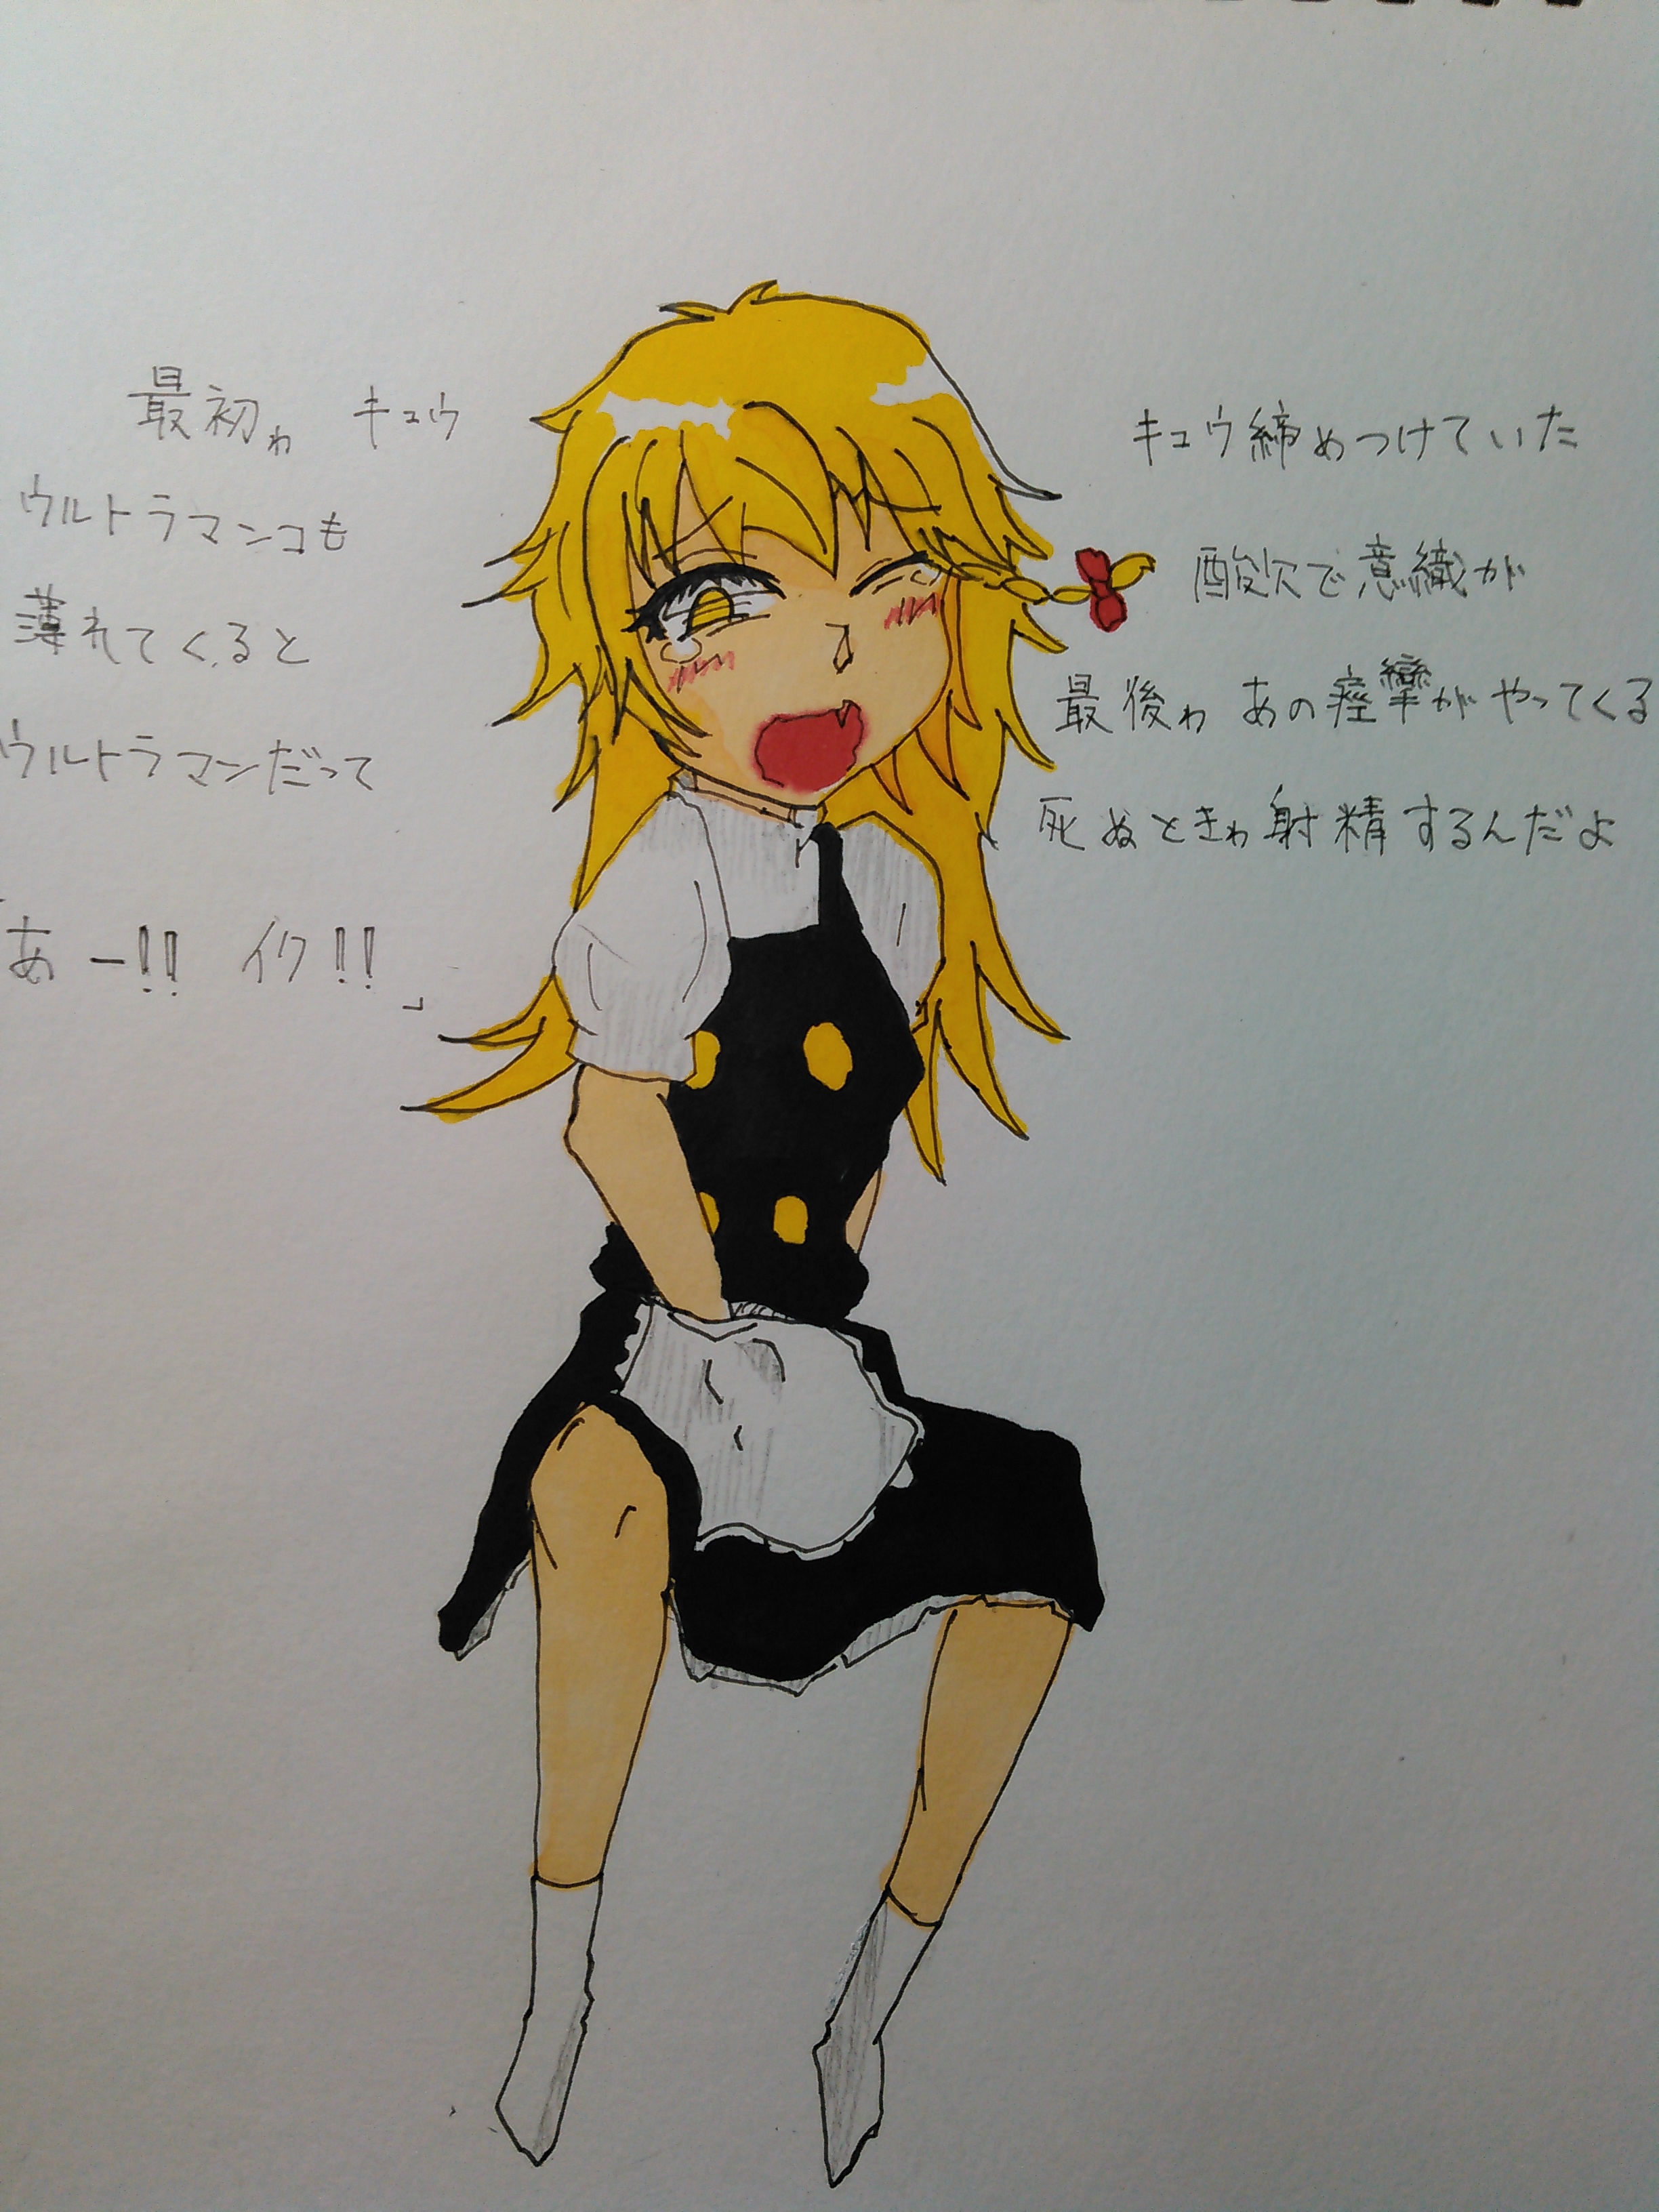 最初ゎ キュウ キュウ締めつけていた
ウルトラマンコも 酸欠で意織が
薄れてくると 最後ゎ あの痙攣がやってくる
ウルトラマンだって 死ぬときゎ射精するんだよ
「あー!! イク!!」